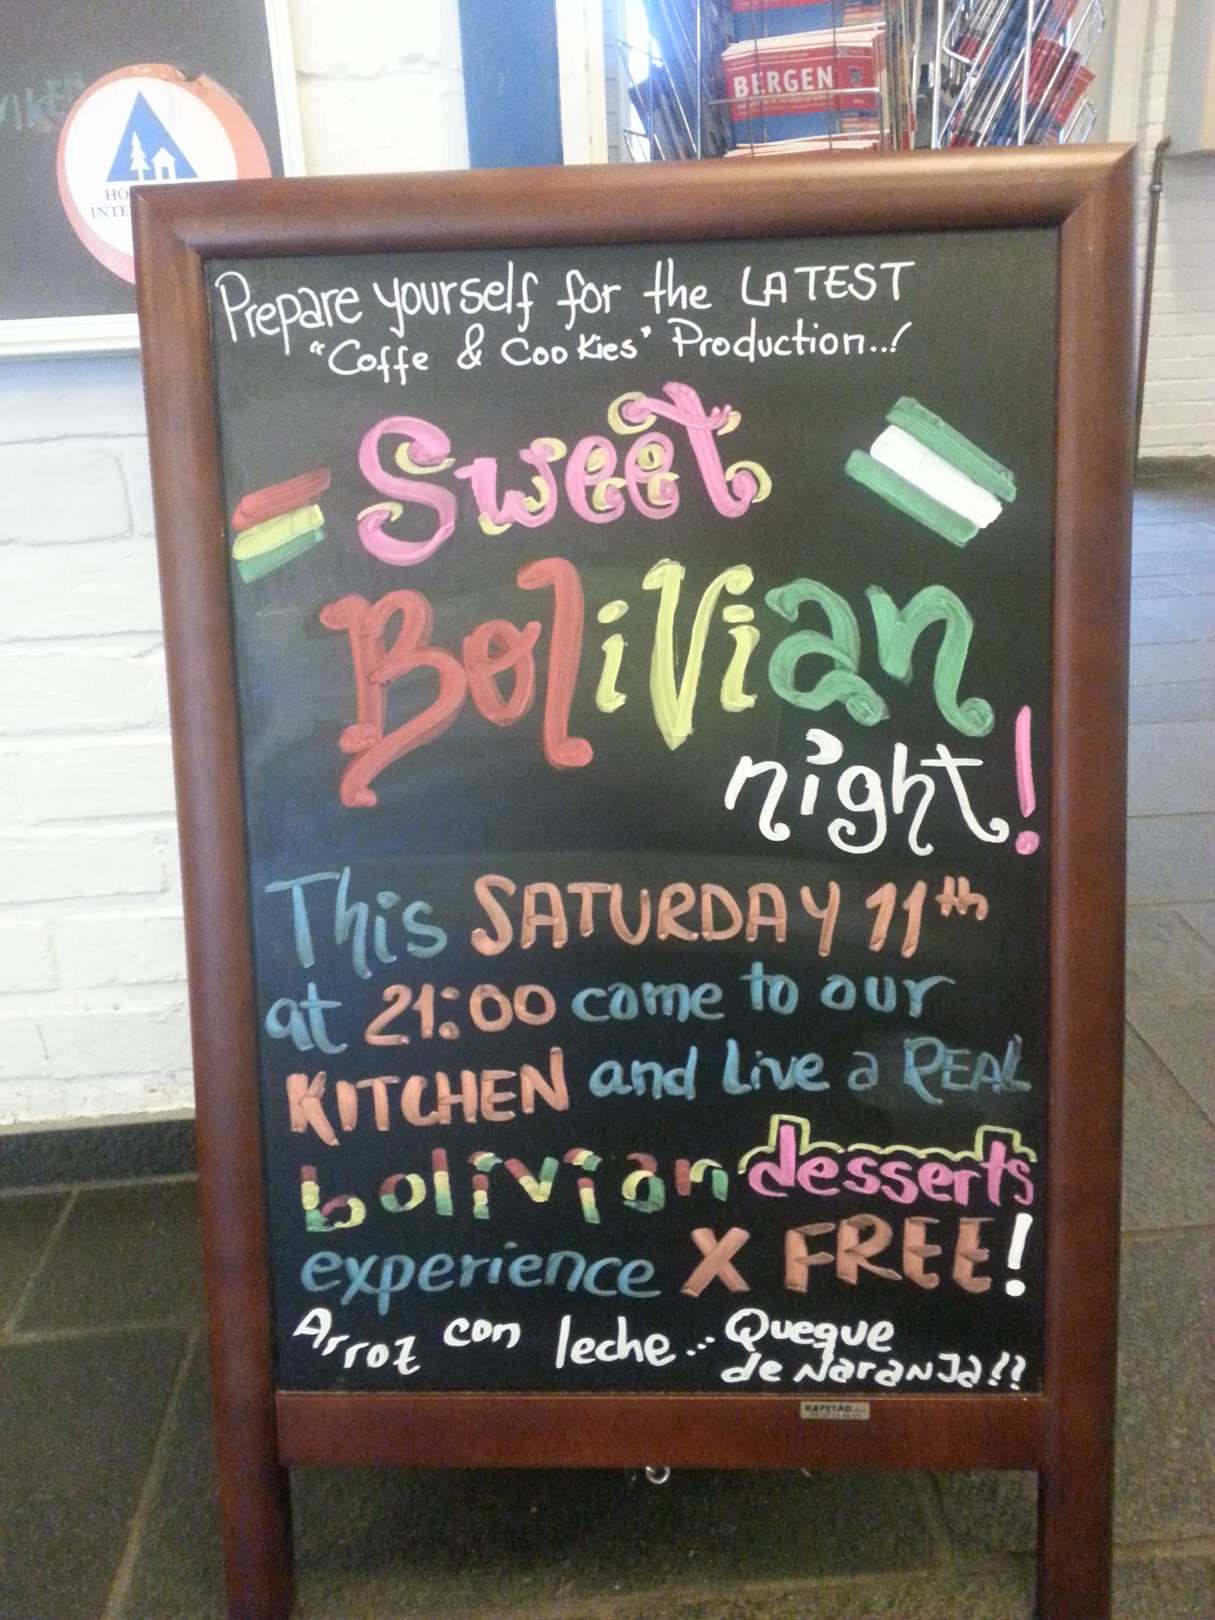 BERGEN
HO
INTE
Prepare yourself for the LATEST
"Coffe & Cookies" Production..!
Sweet
BoliVian
night!
This SATURDAY 11th
at 21:00 come to our
KITCHEN and Live a REAL
bolivian desserts
experience X FREE!
Arroz con leche... Queque
de Naranja!!
KAPSTAD